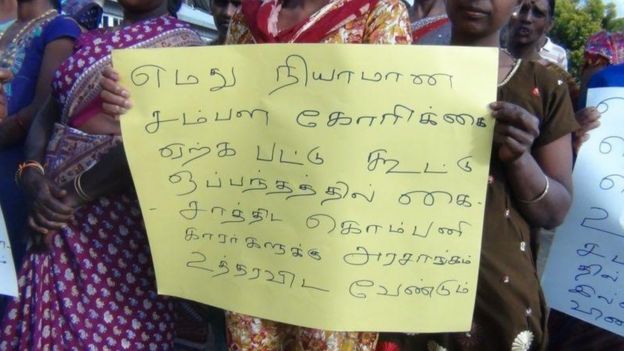 எமது நியாமான
சம்பள கோரிக்கை
ஏற்க பட்டு கூட்டு
ஒப்பந்தத்தில் கை-
- சாத்திட கொம்பனி
காரர்களுக்கு அரசாங்கம்
உத்தரவிட வேண்டும்